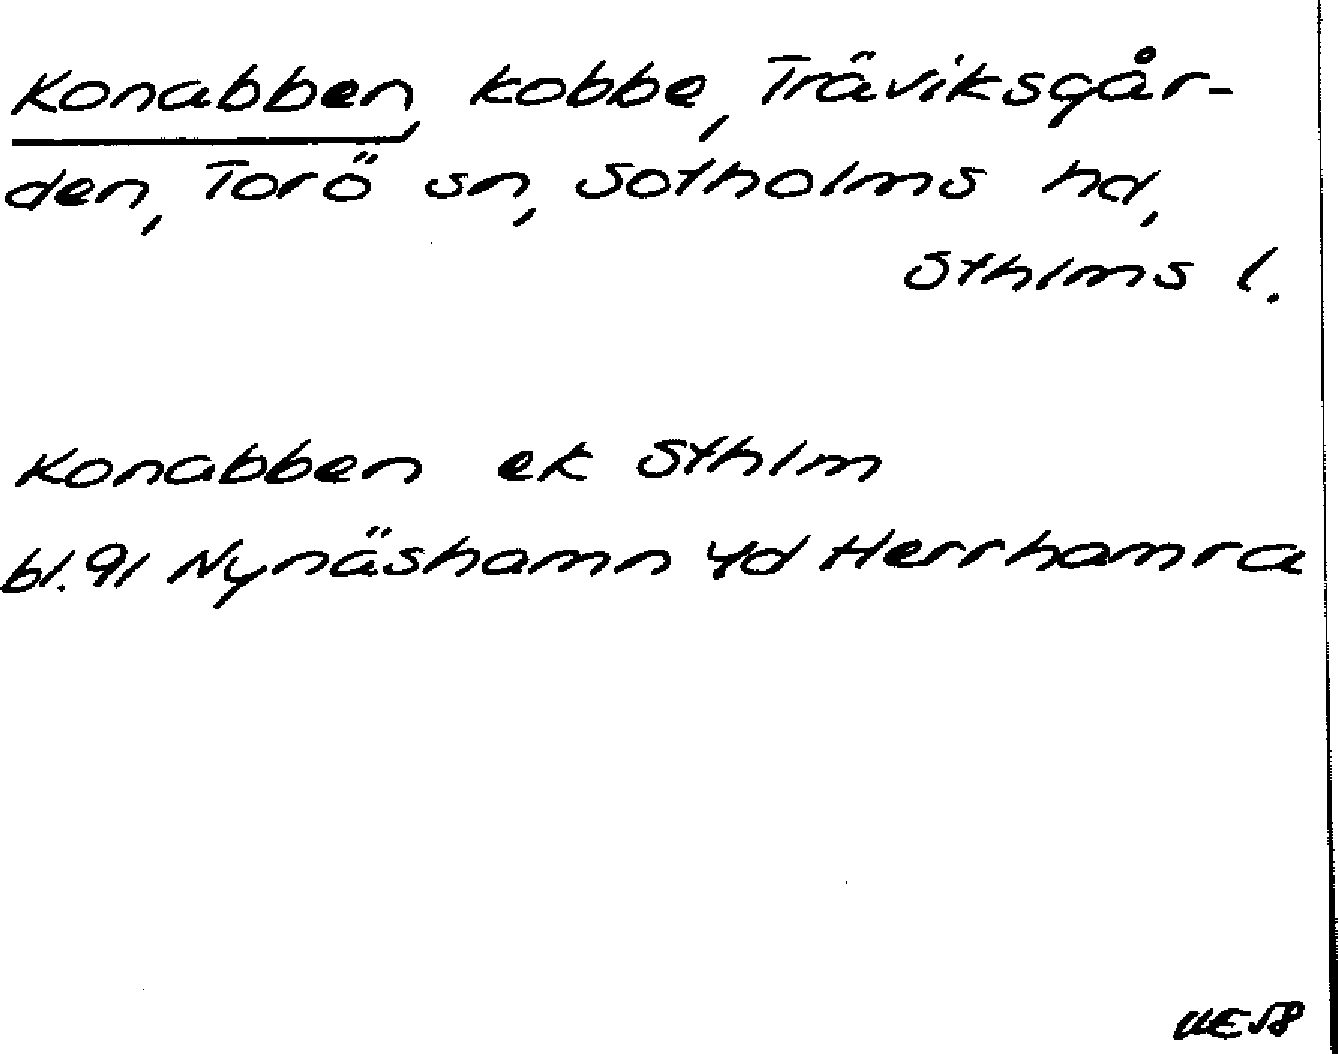 Konabben, kobbe, Träviksgår-
den, Torö sn, Sotholms hd,
Sthlms l.
Konabben ek Sthlm
bl. 91 Nynäshamn 4d Herrhamra